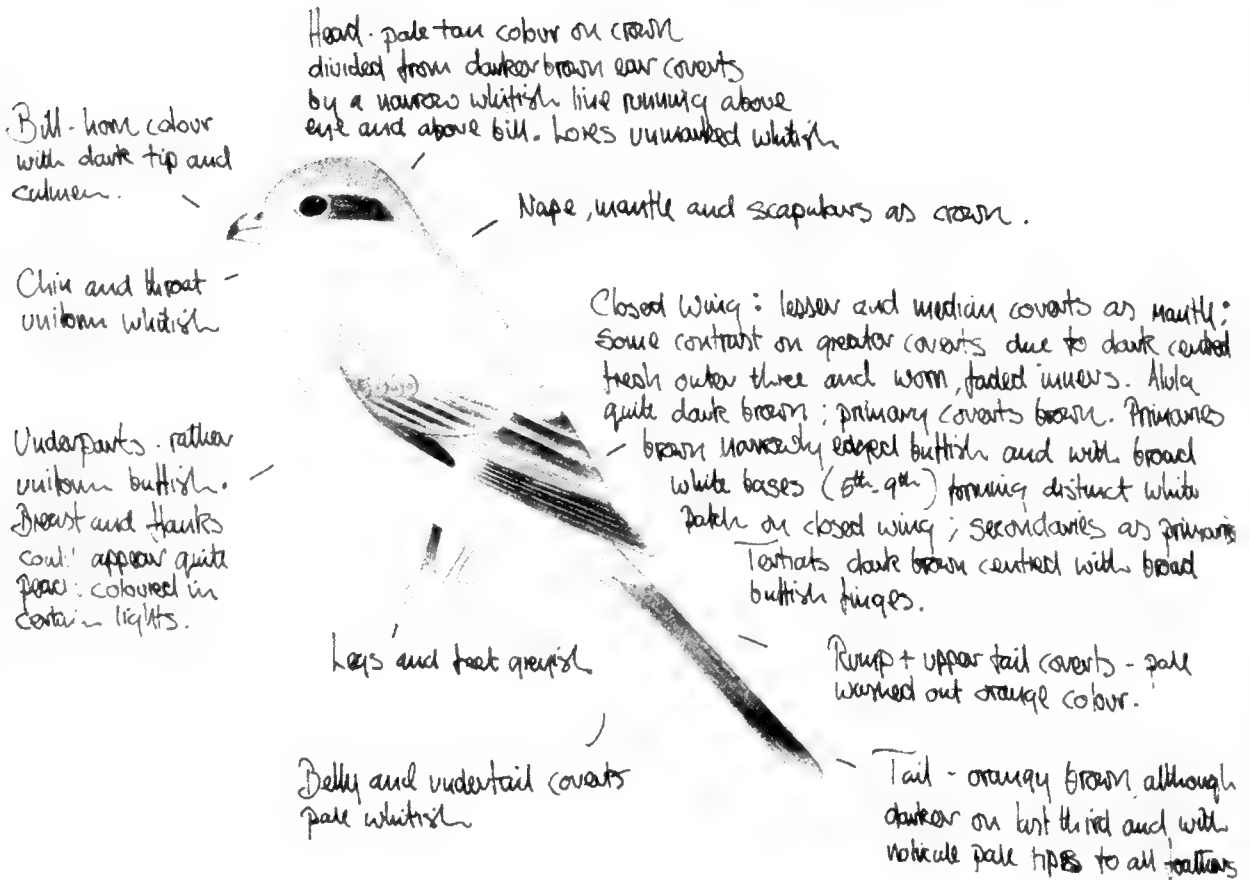 Head - pale tan colour on crown
divided from darker brown ear coverts
by a narrow whitish line running above
eye and above bill. Lores unmarked whitish
Bill - horn colour
with dark tip and
culmen.
Nape, mantle and scapulars as crown.
Chin and throat
uniform whitish
Closed wing : lesser and median coverts as mantle;
Some contrast on greater coverts due to dark centred
fresh outer three and worn, faded inners. Alula
quite dark brown ; primary coverts brown. Primaries
brown narrowly edged buffish and with broad
white bases (5th-9th) forming distinct white
patch on closed wing ; secondaries as primaries
Tertials dark brown centred with broad
buffish fringes.
Underparts - rather
uniform buffish.
Breast and flanks
appear quite
coloured in
certain lights.
Legs and feet greyish
Rump + upper tail coverts - pale
washed out orange colour.
Belly and undertail coverts
pale whitish
Tail - orangy brown although
darker on last third and with
pale tips to all feathers